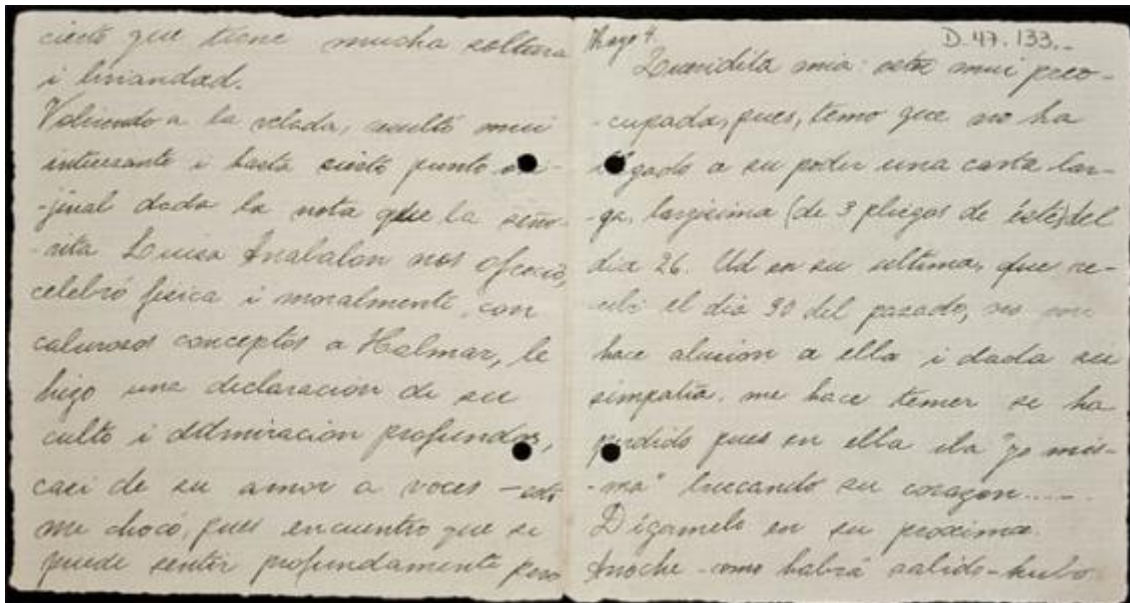 cierto que tiene mucha soltura
i liviandad.
Volviendo a la velada, resultó mui
interesante i hasta cierto punto ori-
-jinal dada la nota que la seño-
-rita Luisa Anabalon nos ofreció,
celebró fisica i moralmente, con
calurosos conceptos a Halmar, le
hizo una declaracion de su
culto i admiracion profundos,
casi de su amor a voces - esto
me chocó, pues encuentro que se
puede sentir profundamente pero
Mayo 4. D.47.133._
Queridita mia: estoi mui preo-
-cupada, pues, temo que no ha
llegado a su poder una carta lar-
-ga, larguisima (de 3 pliegos de éste) del
dia 26. Ud en su ultima, que re-
-cibi el dia 30 del pasado, no me
hace alusion a ella i dada su
simpatia, me hace temer se ha
perdido pues en ella iba "yo mis-
-ma" buscando su corazon.....
Dígamelo en su proxima.
Anoche - como habrá salido - hubo